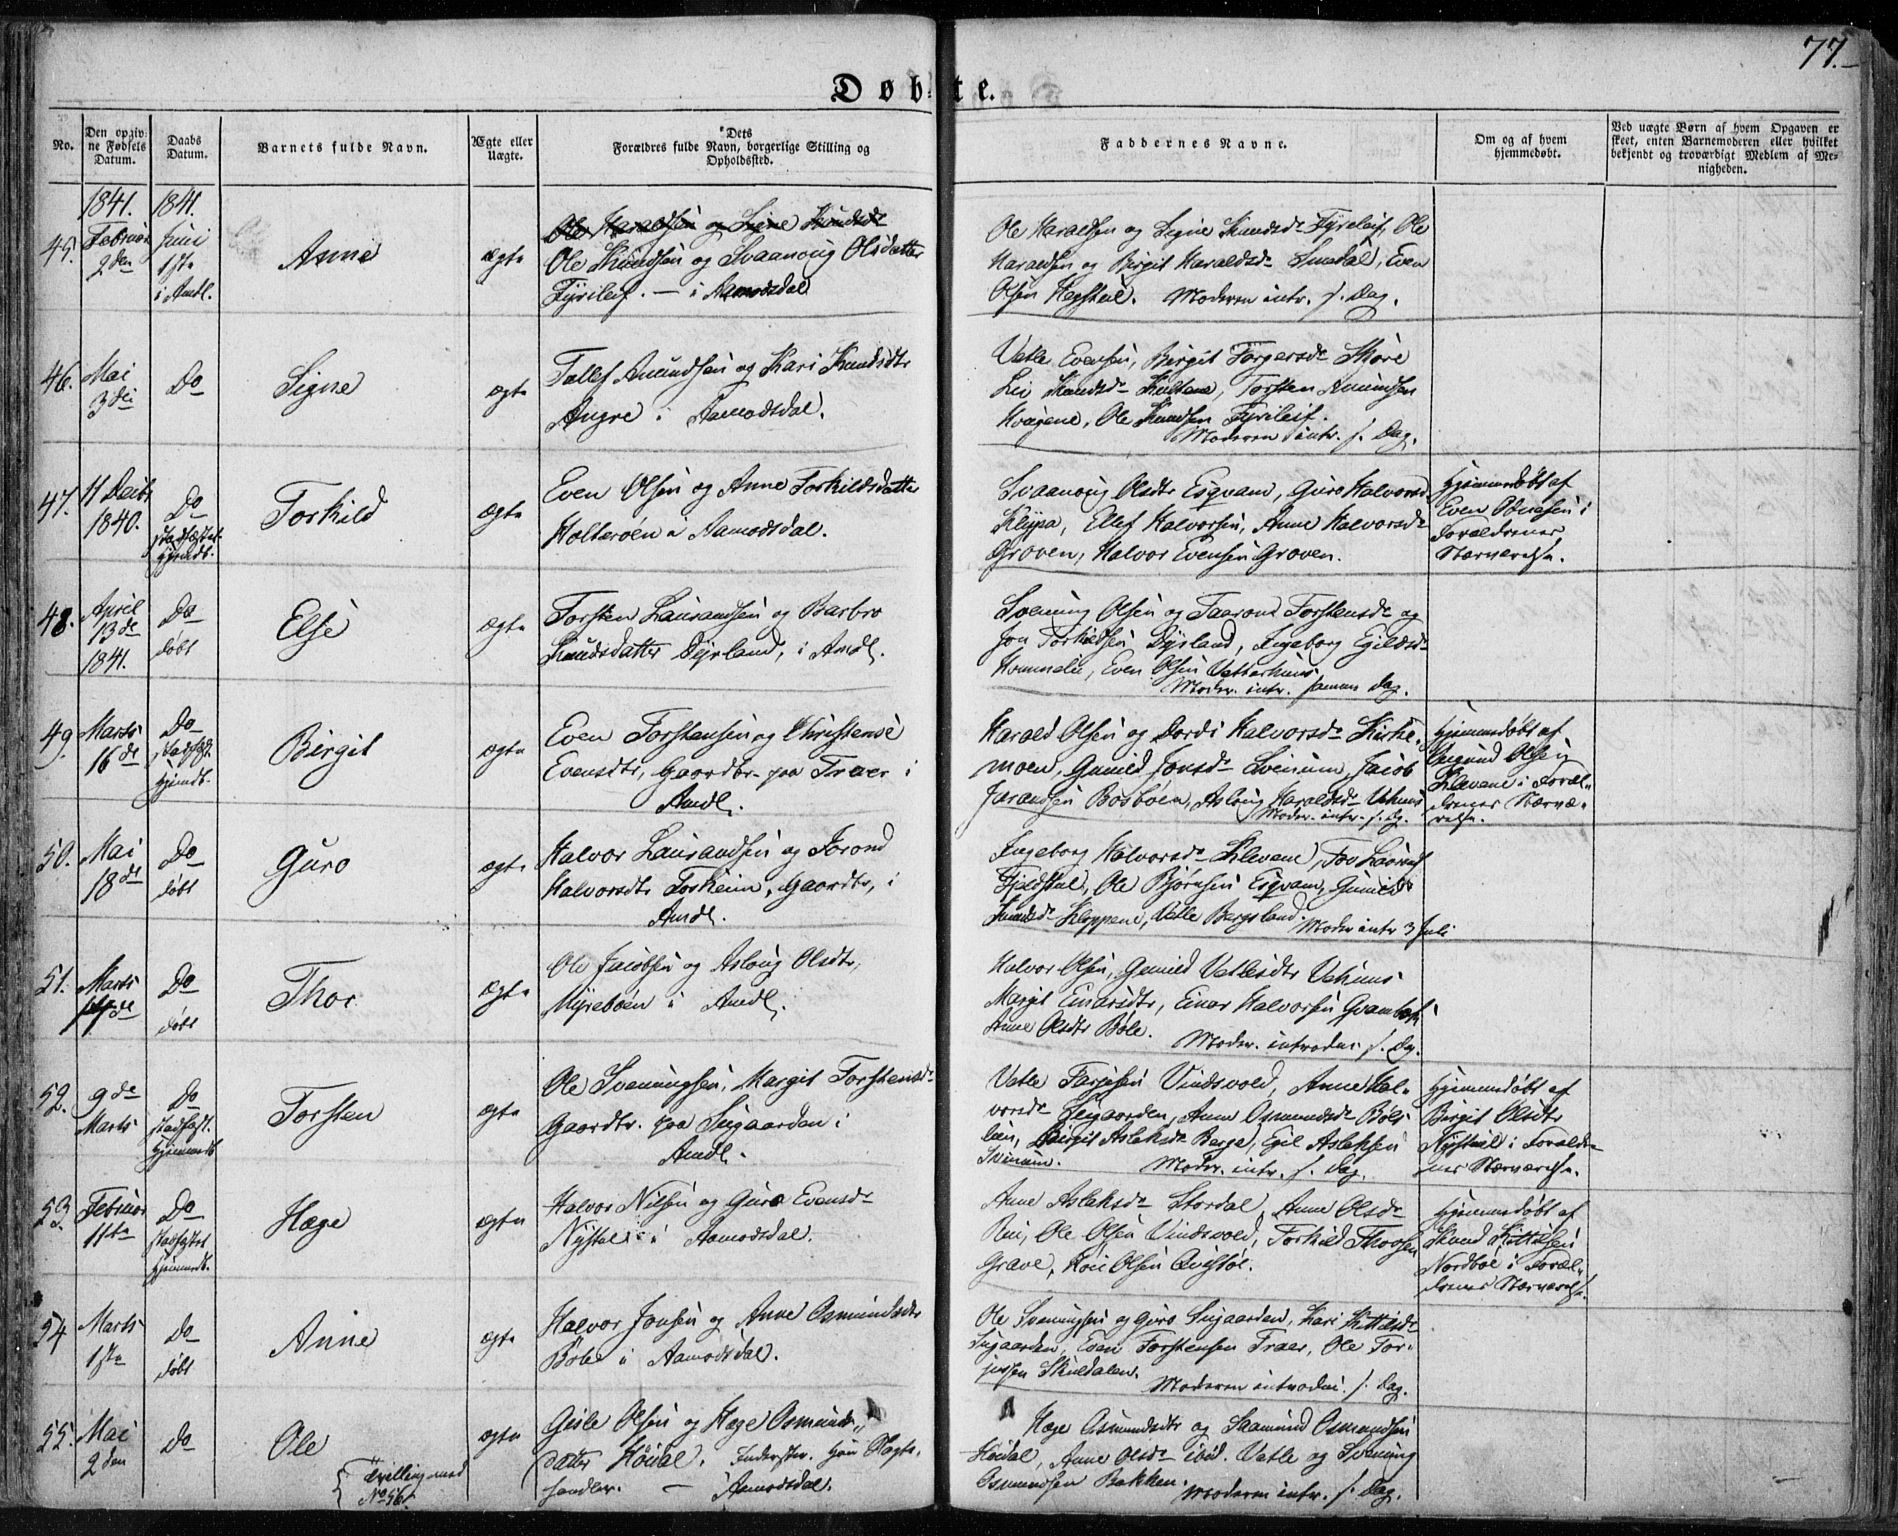 77.
Døbte.
No.
Den opgivne Fødsels Datum.
Daabs Datum.
Barnets fulde Navn.
Ægte eller Uægte.
Dets Forældres fulde Navn, borgerlige Stilling og Opholdssted.
Faddernes Navne.
Om og af hvem hjemmedøbt.
Ved uægte Børn af hvem Opgaven er skeet, enten Barnemoderen eller hvilket bekjendt og troværdigt Medlem af Menigheden.
1841. 1841.
45. Februar 2den
Juni 1ste i Amdl.
Anne
ægte
Ole Haraldsen og Signe Knudsdr
Ole Knudsen og Svaanoug Olsdatter
Fyrileif. — i Aamodsdal
Ole Haraldsen og Signe Knudsdr Fyrileif, Ole
Haraldsen og Birgit Haraldsdr Smedal, Even
Olsen Hegstul. Moderen intr. s. Dag.
46. Mai 3die
Do
Signe
ægte
Tallef Amundsen og Kari Knudsdtr
Angre i Aamodsdal.
Vetle Evensen, Birgit Torgersdr Skore
Liv Knudsdr Hultene, Torsten Amundsen
Hvagene, Ole Knudsen Fyrileif.
Moderen intr. s. Dag.
47. 11 Decbr 1840.
Do stadfæstet hjemdb.
Torkild
ægte
Even Olsen og Anne Torkildsdatter
Holteroen i Aamodsdal.
Svaanoug Olsdtr Esqvam, Guro Halvorsd
Klypa, Ellef Halvorsen, Anne Halvorsdr
Groven, Halvor Evensen Groven.
Hjemmedøbt af
Even Olsen i
Forældrenes
Nærværelse.
48. April 13de 1841.
Do døbt
Else
ægte
Torsten Laurandsen og Barbro
Knudsdatter Dyrland, i Amdl.
Svenung Olsen og Taarond Torstensdr og
Jon Torkildsen Dyrland, Ingeborg Egilsdr
Hommelie, Even Olsen Vetterhuus
Moder. intr. samme Dag.
49. Marts 16de
Do stadfæst. hjemdb.
Birgit
ægte
Even Torstensen og Christense
Evensdtr, Gaardbr. paa Traer i
Amdl.
Harald Olsen og Dordi Halvorsdr Kirke-
moen, Gunild Jonsdr Sveinum, Jacob
Jarandsen Bosbøen, Asloug Haraldsdr Vehuus
Moder. intr. s. Dg.
Hjemmedøbt af
Olsen
Klevane i Foræl-
drenes Nærvæ-
relse.
50. Mai 18de
Do døbt
Guro
ægte
Halvor Laurandsen og Jorond
Halvorsdtr Torheim, Gaardbr, i
Amdl.
Ingeborg Halvorsdr Klevane, Tov Laurands
Fjeldstul, Ole Bjørnsen Esqvam, Gunild
Knudsdr Kloppene, Vetle Bergsland.
Moder intr 3 Juli
51. Marts 14de
Do døbt
Thor
ægte
Ole Jacobsen og Asloug Olsdtr,
Myreboen i Amdl.
Halvor Olsen, Gunild Vetlesdtr Vehuus
Margit Einarsdtr, Einar Halvorsen Gvambæk
Anne Olsdtr Bøle.
Moder. introdu: s. Dg.
52. 9de Marts
Do stadfæst. hjemmedb
Torsten
ægte
Ole Svenungsen, Margit Torstensdr
Gaardbr. paa Suigaarden i
Amdl.
Vetle Tarjesen Vindsvold, Anne Hal-
vorsdr Suigaarden, Anne Osmundsdr Bøls-
lien, Birgit Aslaksdr Berge, Egil Aslaksen
Sveinum. Moder. intr. s. Dag.
Hjemmedøbt af
Birgit Olsdtr
Nystul i Foræld-
enes Nærværelse.
53. Februar 11te
Do stadfæstet hjemmedb.
Hæge
ægte
Halvor Nilsen og Guro Evensdr
Nystul i Aamodsdal.
Anne Aslaksdr Stordal, Anne Olsdr
Rui, Ole Olsen Vindsvold, Torkild Thorsen
Grave, Olsen Qvistøl.
Hjemmedøbt af
Knud Kittilsen
Nordbøe i Foræl-
drenes Nærværelse.
54 Marts 1ste
Do døbt
Anne
ægte
Halvor Jonsen og Anne Osmundsdtr
Bøle i Aamodsdal.
Ole Svenungsen og Guro Suigaarden, Kari Kittilsdr
Suigaarden, Even Torstensen Traer, Ole Tor-
jussen Skuldalen.
Moderen introdu: s. Dag.
55. Mai 2den
Do
Ole
{ Tvilling med
No 56.
ægte
Gisle Olsen og Hæge Osmunds-
datter Høidal. Inderster. Han Slagte-
handler. — Aamodsdal.
Hæge Osmundsdtr og Saamund Osmundsen
Høidal, Anne Olsdr ibid. Vetle og Svenung
Osmundsen Bakken.
Moderen intr. s. Dag.